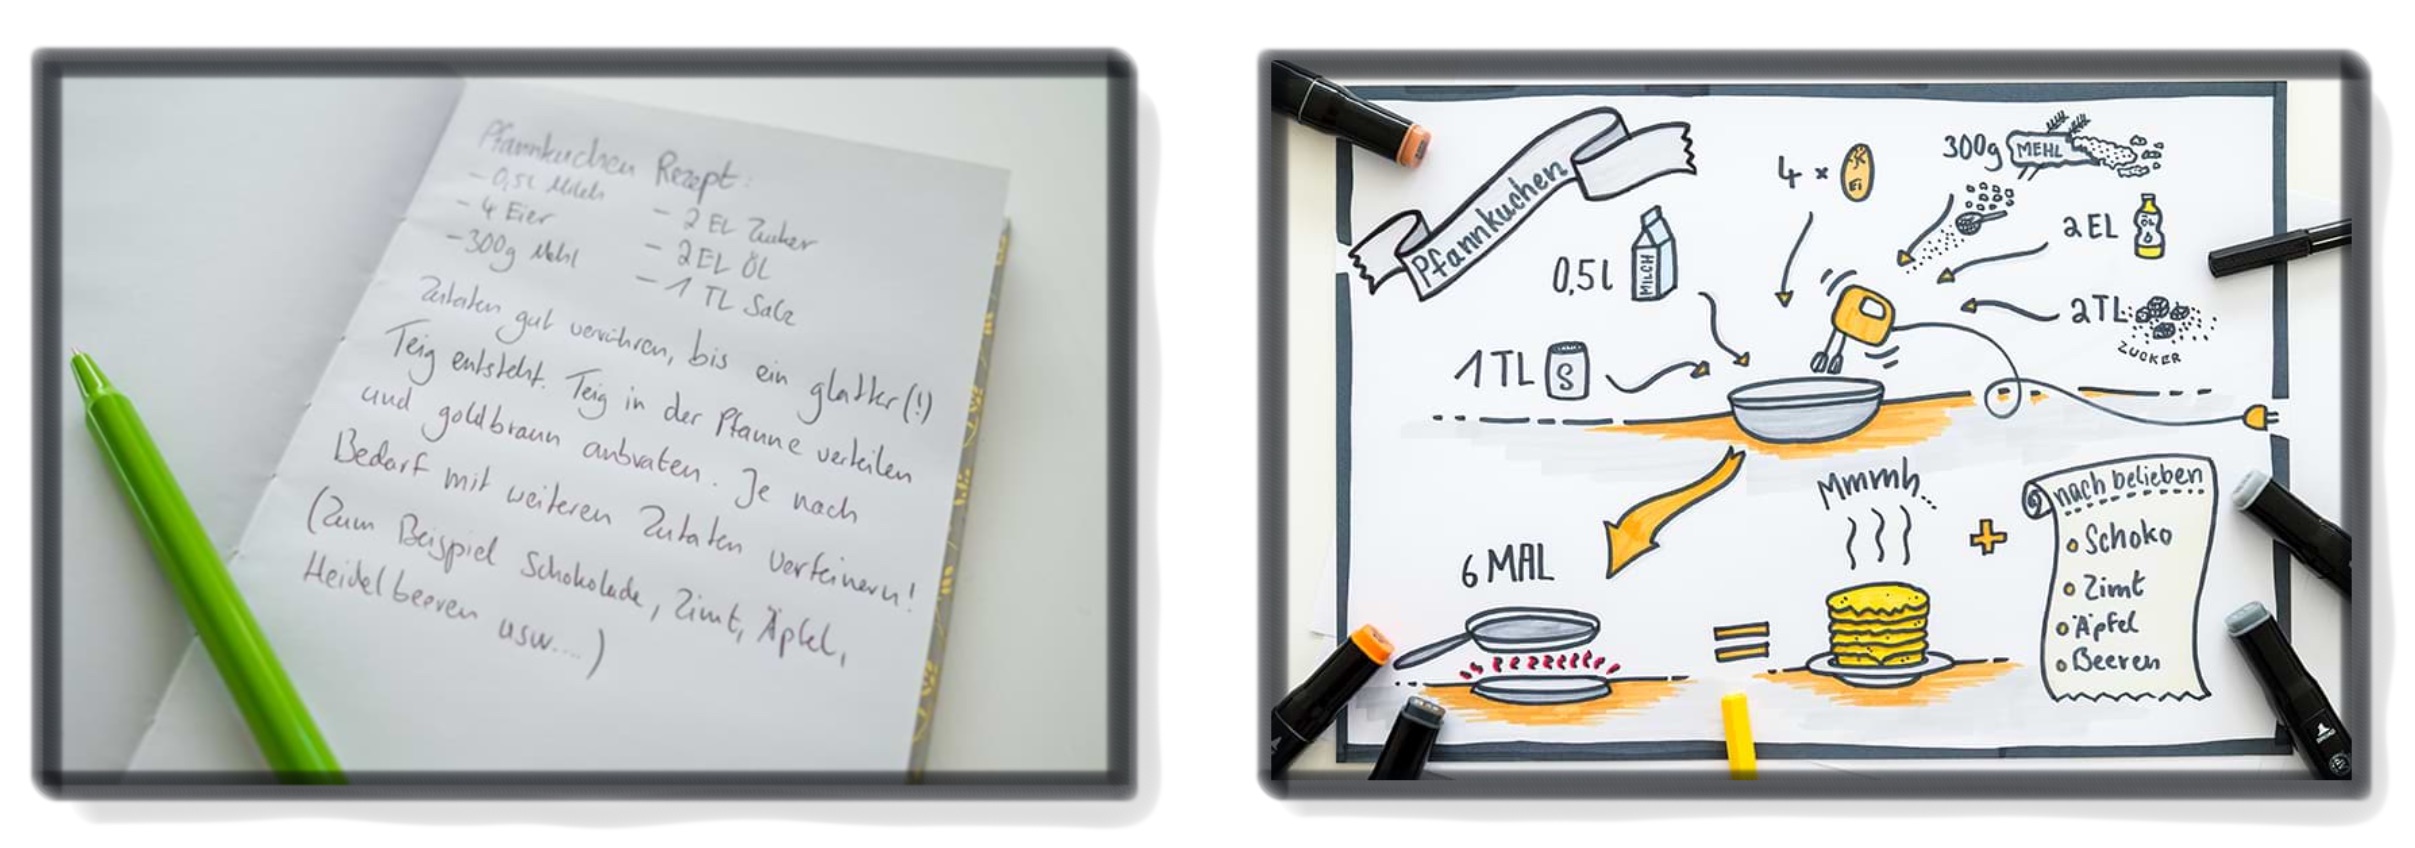 Pfannkuchen Rezept:
- 0,5l Milch
- 4 Eier
- 300g Mehl
- 2 EL Zucker
- 2 EL Öl
- 1 TL Salz
Zutaten gut verrühren, bis ein glatter(!)
Teig entsteht. Teig in der Pfanne verteilen
und goldbraun anbraten. Je nach
Bedarf mit weiteren Zutaten verfeinern!
(Zum Beispiel Schokolade, Zimt, Äpfel,
Heidelbeeren usw....)
Pfannkuchen
4 x Ei
300g MEHL
0,5l MILCH
2 EL ÖL
1 TL S
2 TL
ZUCKER
6 MAL
Mmmh...
nach belieben
Schoko
Zimt
Äpfel
Beeren